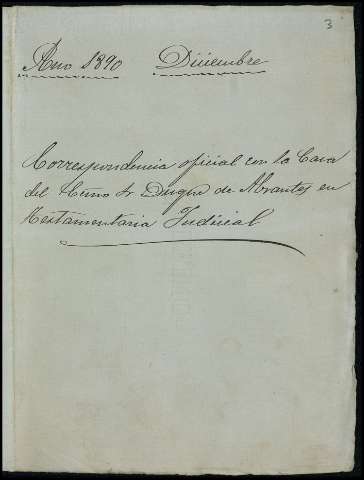 3
Año 1890 Diciembre
Correspondencia oficial con la Casa
del Excmo Sr Duque de Abrantes en
Testamentaria Judicial